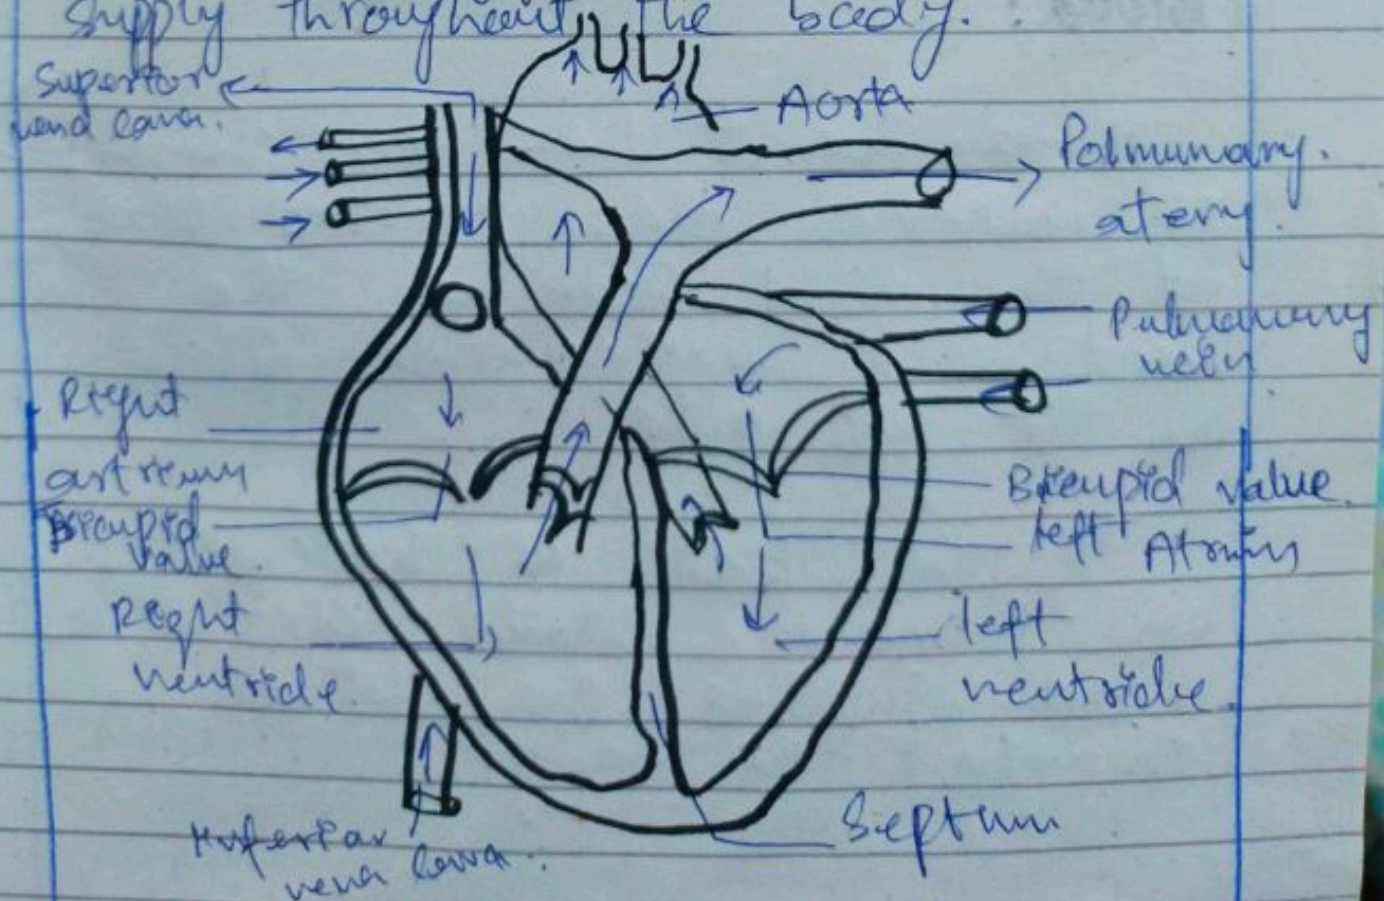 supply throughout the body.
Superior
vena cava.
Aorta
Polmunary.
atery
Pulmunary
vein
Right
artrium
Bicupid
value.
Bicupid value.
left Atrium
Right
ventricle.
left
ventricle.
Septum
Inferior
vena cava.